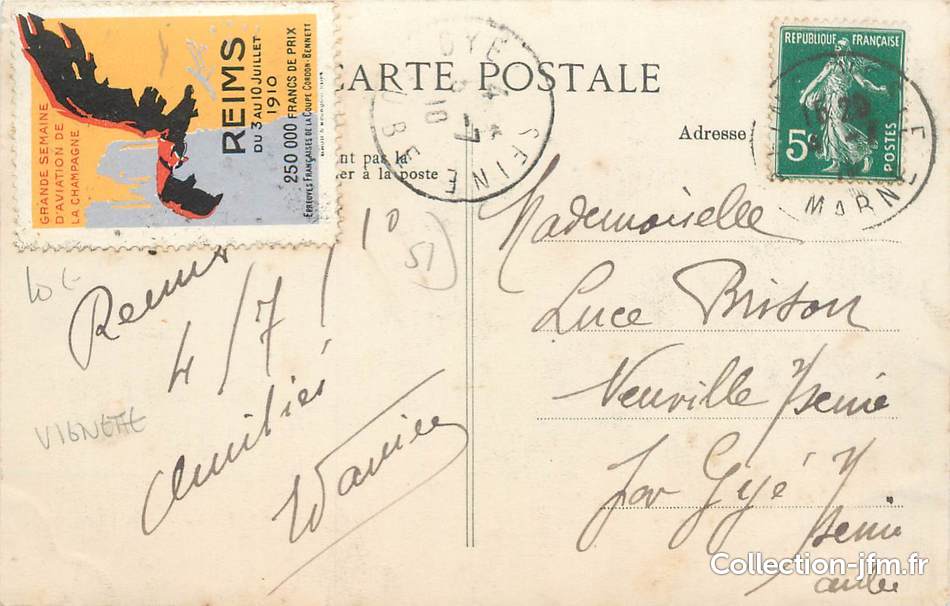 GRANDE SEMAINE
D'AVIATION DE
LA CHAMPAGNE
REIMS
DU 3 AU 10 JUILLET
1910
250 000 FRANCS DE PRIX
EPREUVES FRANÇAISES DE LA COUPE GORDON-BENNETT
CARTE POSTALE
nt pas la
er à la poste
GYÉ
4 - 7
10
S/ SEINE
AUBE
Reims
4/7/10
Amitiés
10 €
VIGNETTE
(51)
REPUBLIQUE FRANÇAISE
5c
POSTES
MARNE
Adresse
Mademoiselle
Luce Brison
Neuville s/ seine
par Gyé s/
seine
aube
Collection-jfm.fr